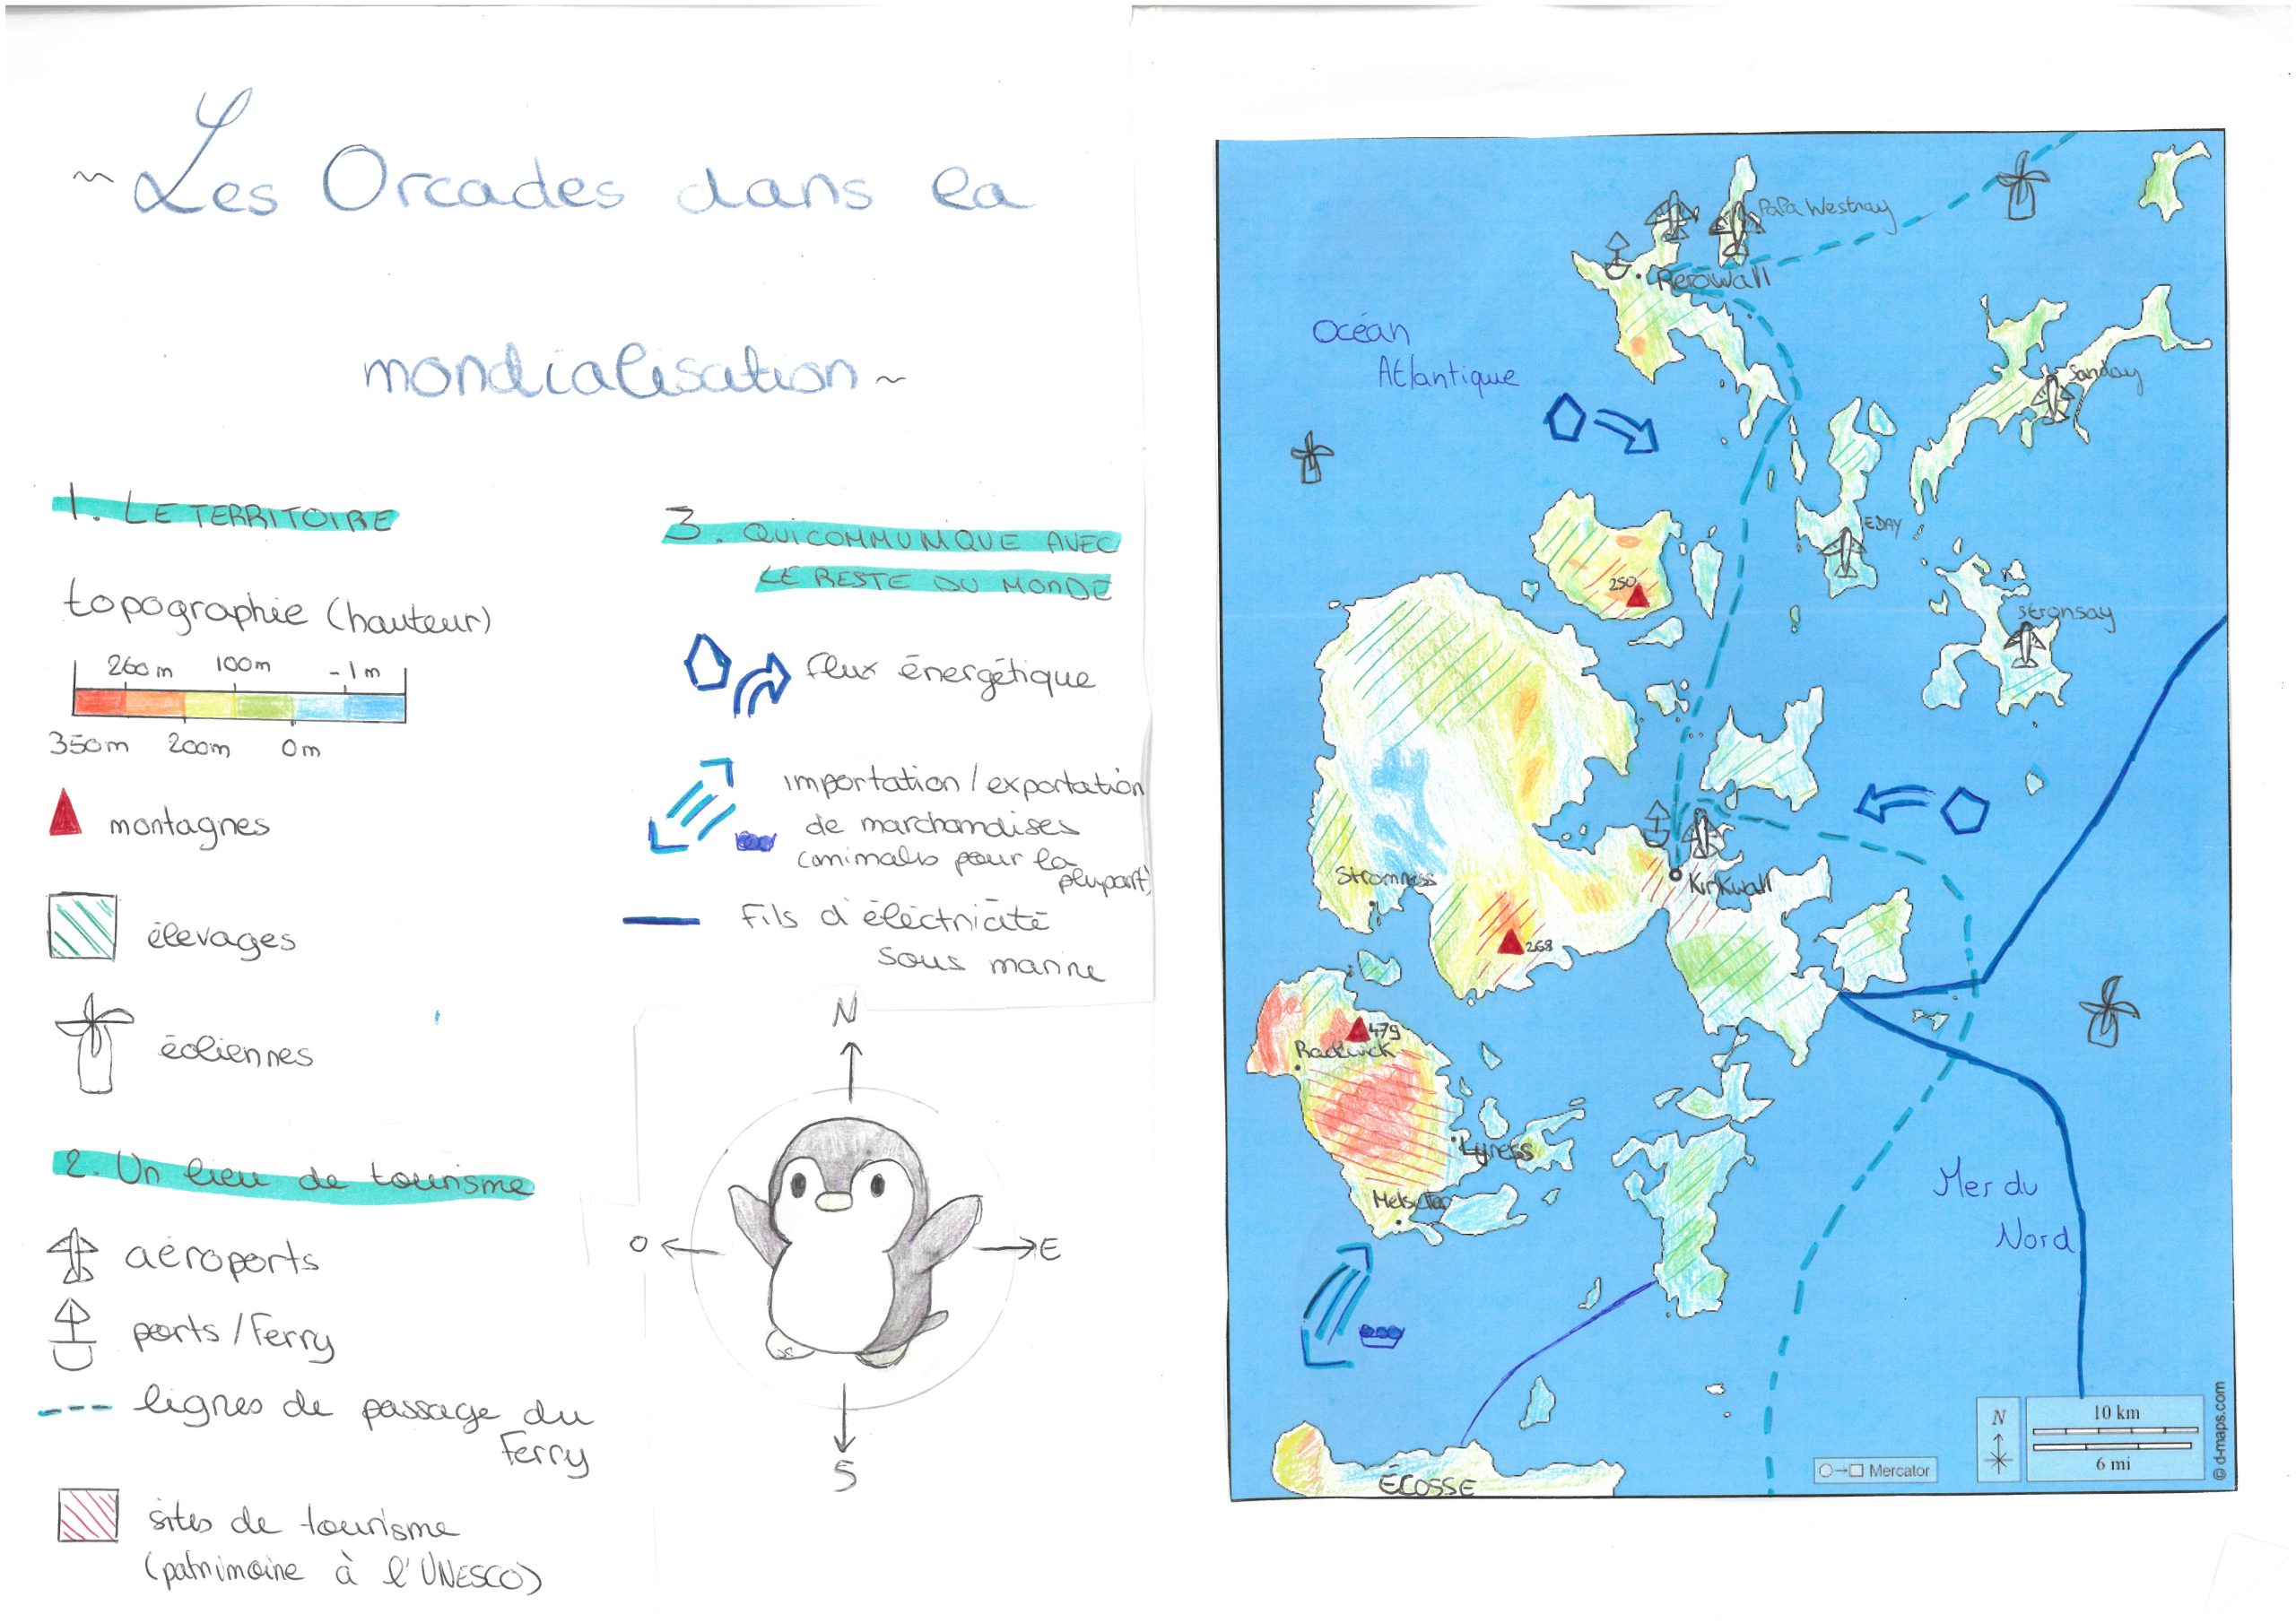 ~ Les Orcades dans la
mondialisation ~
1. LE TERRITOIRE
topographie (hauteur)
260m 100m -1m
350m 200m 0m
montagnes
élevages
éoliennes
2. Un lieu de tourisme
aéroports
ports/Ferry
lignes de passage du
Ferry
sites de tourisme
(patrimoine à l'UNESCO)
3. QUI COMMUNIQUE AVEC
LE RESTE DU MONDE
flux énergétique
importation/exportation
de marchandises
(animals pour la
plupart)
Fils d'éléctricité
sous marine
N
O
E
S
PaPa Westray
Pierowall
Océan
Atlantique
Sanday
EDAY
250
Stronsay
Stromness
KirKwall
268
479
Rackwick
Lyness
Melsetter
Mer du
Nord
ÉCOSSE
Mercator
N
10 km
6 mi
© d-maps.com